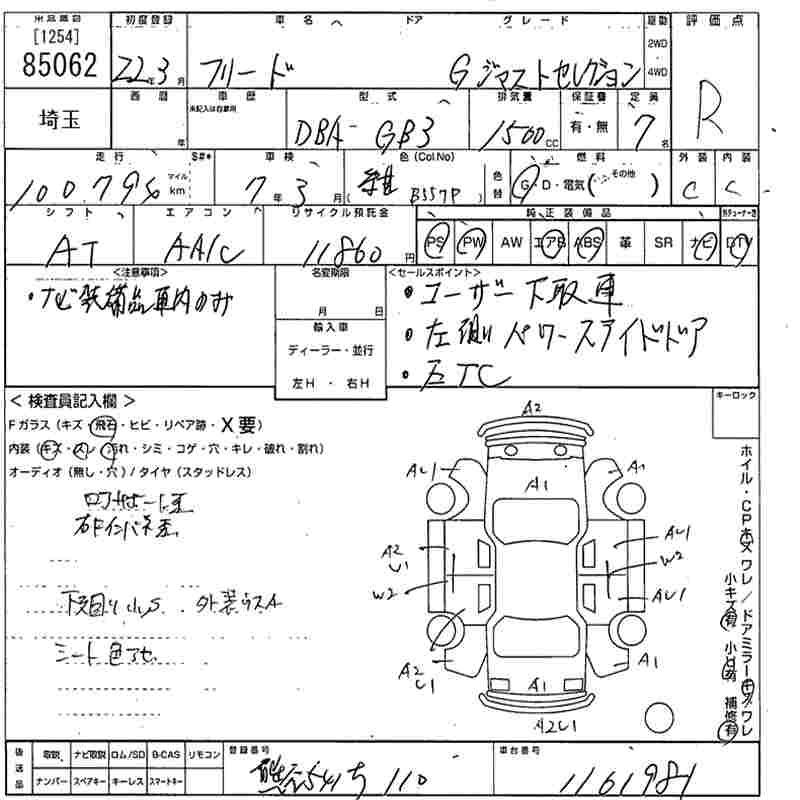 [1254]
85062
初度登録 車名 ドア グレード 駆動 評価点
22年3月 フリード Gジャストセレクション 2WD 4WD R
埼玉
西暦 車歴 型式 排気量 保証書 定員
未記入は自家用
年 DBA-GB3 1500cc 有・無 7名
走行 S#* 車検 色(Col.No) 燃料 外装 内装
マイル km 7年3月 B557P 色替 G・D・電気( その他 ) C C
シフト エアコン リサイクル預託金 純正装備品
AT AA/C 11860円 PS PW AW エアB ABS 革 SR ナビ DTV
<注意事項> 名変期限 <セールスポイント>
・ナビ装備品車内のみ 月 日 ・ユーザー下取車
輸入車 ・左側パワースライドドア
ディーラー・並行
左H・右H ・ETC
<検査員記入欄> キーロック
Fガラス(キズ・飛石・ヒビ・リペア跡・X要)
内装(キズ・スレ・汚れ・シミ・コゲ・穴・キレ・破れ・割れ)
オーディオ(無し・穴)/タイヤ(スタッドレス)
下回り小S 外装ウスA
シート色アセ
A2
AU1 A1 A1
A2 U1 AU1
W2 W2
AU1
A2 U1 A1 A1
A2U1
後送品 取説 ナビ取説 ロム/SD B-CAS リモコン 登録番号 車台番号
ナンバー スペアキー キーレス スマートキー 熊谷541ち110 1161981